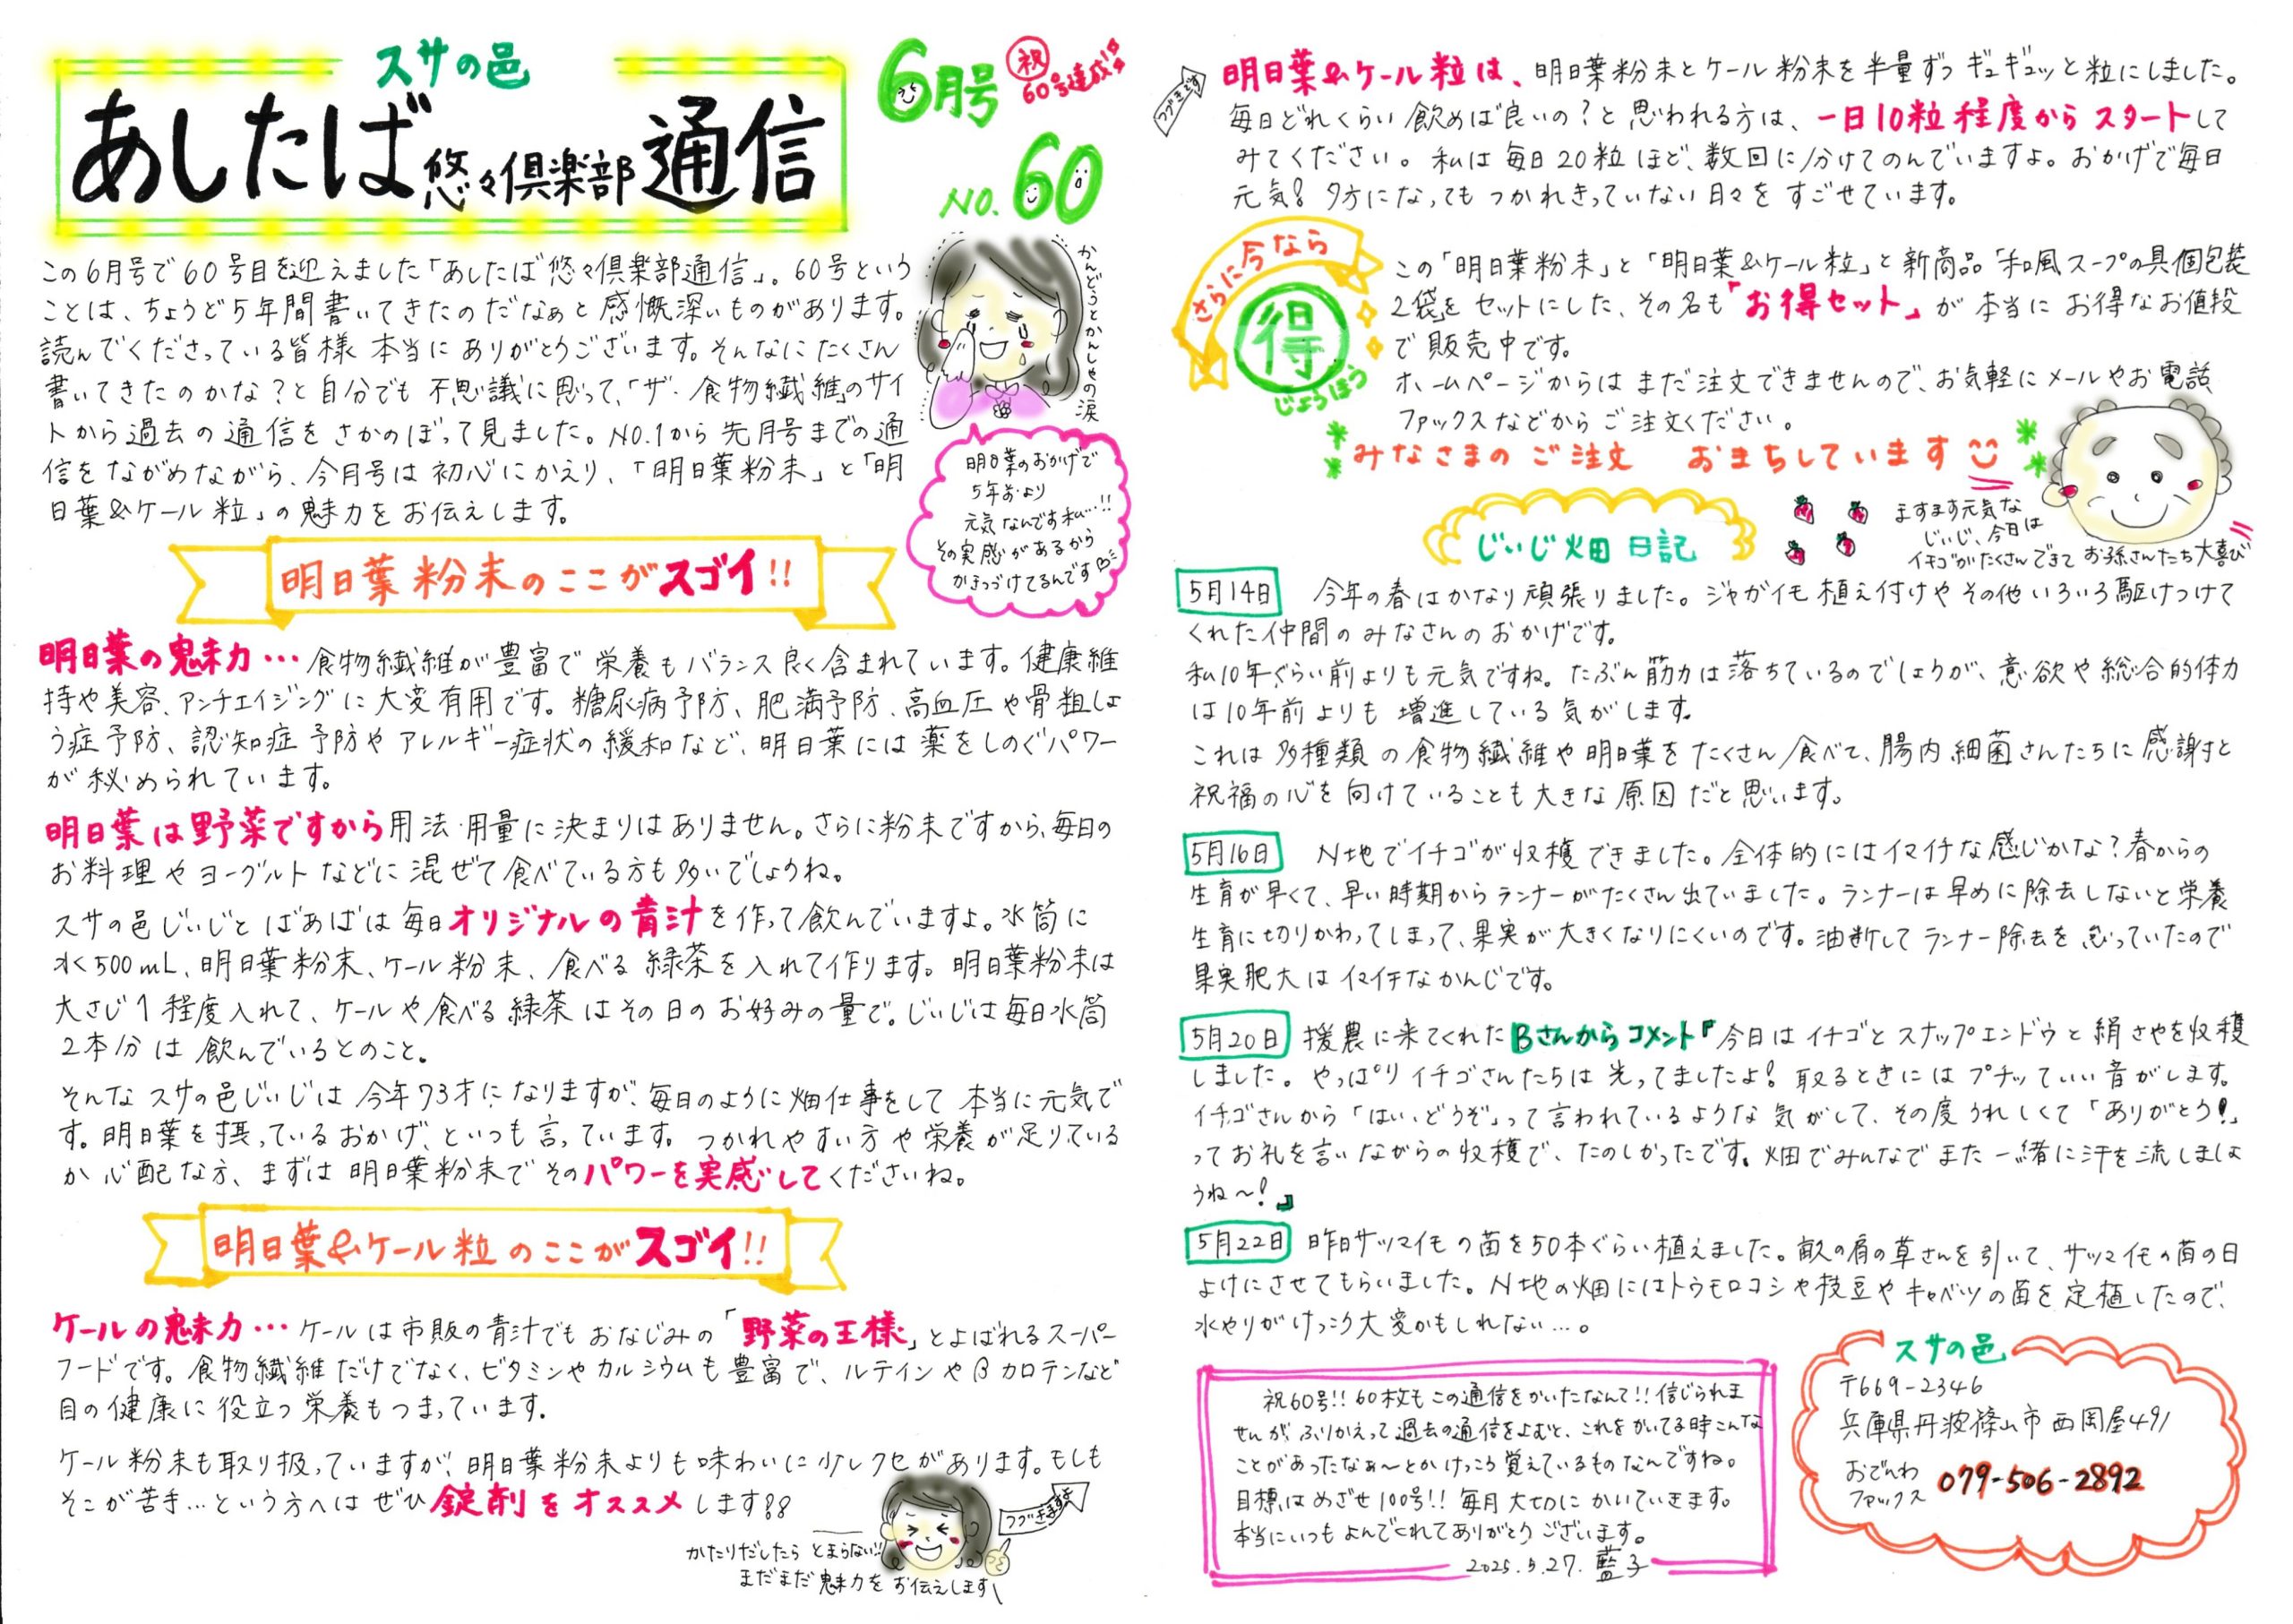 スサの邑
あしたば悠々倶楽部通信
6月号
祝
60号達成!!
NO.60
この6月号で60号目を迎えました「あしたば悠々倶楽部通信」。60号という
ことは、ちょうど5年間書いてきたのだなぁと感慨深いものがあります。
読んでくださっている皆様 本当にありがとうございます。そんなにたくさん
書いてきたのかな?と自分でも不思議に思って、「ザ・食物繊維」のサイ
トから過去の通信をさかのぼって見ました。NO.1から先月号までの通
信をながめながら、今月号は初心にかえり、「明日葉粉末」と「明
日葉&ケール粒」の魅力をお伝えします。
かんどうとかんしゃの涙
明日葉のおかげで
5年前より
元気なんです私…!!
その実感があるから
かきつづけてるんです♡
明日葉粉末のここがスゴイ!!
明日葉の魅力…食物繊維が豊富で栄養もバランス良く含まれています。健康維
持や美容、アンチエイジングに大変有用です。糖尿病予防、肥満予防、高血圧や骨粗しょ
う症予防、認知症予防やアレルギー症状の緩和など、明日葉には薬をしのぐパワー
が秘められています。
明日葉は野菜ですから用法・用量に決まりはありません。さらに粉末ですから、毎日の
お料理やヨーグルトなどに混ぜて食べている方も多いでしょうね。
スサの邑じぃじとばあばは毎日オリジナルの青汁を作って飲んでいますよ。水筒に
水500mL、明日葉粉末、ケール粉末、食べる緑茶を入れて作ります。明日葉粉末は
大さじ1程度入れて、ケールや食べる緑茶はその日のお好みの量で。じぃじは毎日水筒
2本分は飲んでいるとのこと。
そんなスサの邑じぃじは今年73才になりますが、毎日のように畑仕事をして本当に元気で
す。明日葉を摂っているおかげ、といつも言っています。つかれやすい方や栄養が足りている
か心配な方、まずは明日葉粉末でそのパワーを実感してくださいね。
明日葉&ケール粒のここがスゴイ!!
ケールの魅力…ケールは市販の青汁でもおなじみの「野菜の王様」とよばれるスーパー
フードです。食物繊維だけでなく、ビタミンやカルシウムも豊富で、ルテインやβカロテンなど
目の健康に役立つ栄養もつまっています。
ケール粉末も取り扱っていますが、明日葉粉末よりも味わいに少しクセがあります。もしも
そこが苦手…という方へはぜひ錠剤をオススメします!!
かたりだしたらとまらない!!
まだまだ魅力をお伝えします
つづきますよ
つづきです
明日葉&ケール粒は、明日葉粉末とケール粉末を半量ずつギュギュッと粒にしました。
毎日どれくらい飲めば良いの?と思われる方は、一日10粒程度からスタートして
みてください。私は毎日20粒ほど、数回に分けてのんでいますよ。おかげで毎日
元気!夕方になってもつかれきっていない日々をすごせています。
さらに今なら
得
じょうほう
この「明日葉粉末」と「明日葉&ケール粒」と新商品「和風スープの具個包装
2袋」をセットにした、その名も「お得セット」が本当にお得なお値段
で販売中です。
ホームページからはまだ注文できませんので、お気軽にメールやお電話
ファックスなどからご注文ください。
みなさまのご注文 おまちしています
じぃじ畑日記
ますます元気な
じぃじ、今日は
イチゴがたくさんできてお孫さんたち大喜び
5月14日 今年の春はかなり頑張りました。ジャガイモ植え付けやその他いろいろ駆けつけて
くれた仲間のみなさんのおかげです。
私10年ぐらい前よりも元気ですね。たぶん筋力は落ちているのでしょうが、意欲や総合的体力
は10年前よりも増進している気がします。
これは多種類の食物繊維や明日葉をたくさん食べて、腸内細菌さんたちに感謝と
祝福の心を向けていることも大きな原因だと思います。
5月16日 N地でイチゴが収穫できました。全体的にはイマイチな感じかな?春からの
生育が早くて、早い時期からランナーがたくさん出ていました。ランナーは早めに除去しないと栄養
生育に切りかわってしまって、果実が大きくなりにくいのです。油断してランナー除去を怠っていたので
果実肥大はイマイチなかんじです。
5月20日 援農に来てくれたBさんからコメント『今日はイチゴとスナップエンドウと絹さやを収穫
しました。やっぱりイチゴさんたちは光ってましたよ!取るときにはプチッていい音がします。
イチゴさんから「はい、どうぞ」って言われているような気がして、その度うれしくて「ありがとう!」
ってお礼を言いながらの収穫で、たのしかったです。畑でみんなでまた一緒に汗を流しましょ
うね〜!』
5月22日 昨日サツマイモの苗を50本ぐらい植えました。畝の肩の草さんを引いて、サツマイモの苗の日
よけにさせてもらいました。N地の畑にはトウモロコシや枝豆やキャベツの苗を定植したので、
水やりがけっこう大変かもしれない…。
祝60号!!60枚もこの通信をかいたなんて!!信じられま
せんが、ふりかえって過去の通信をよむと、これをかいてる時こんな
ことがあったなぁ〜とかけっこう覚えているものなんですね。
目標はめざせ100号!!毎月大切にかいていきます。
本当にいつもよんでくれてありがとうございます。
2025.5.27. 藍子
スサの邑
〒669-2346
兵庫県丹波篠山市西岡屋491
おでんわ
ファックス 079-506-2892